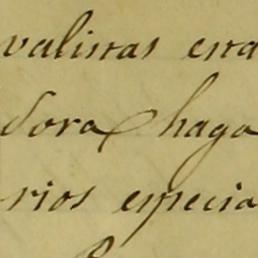 valinas era
dora haga
rios especia